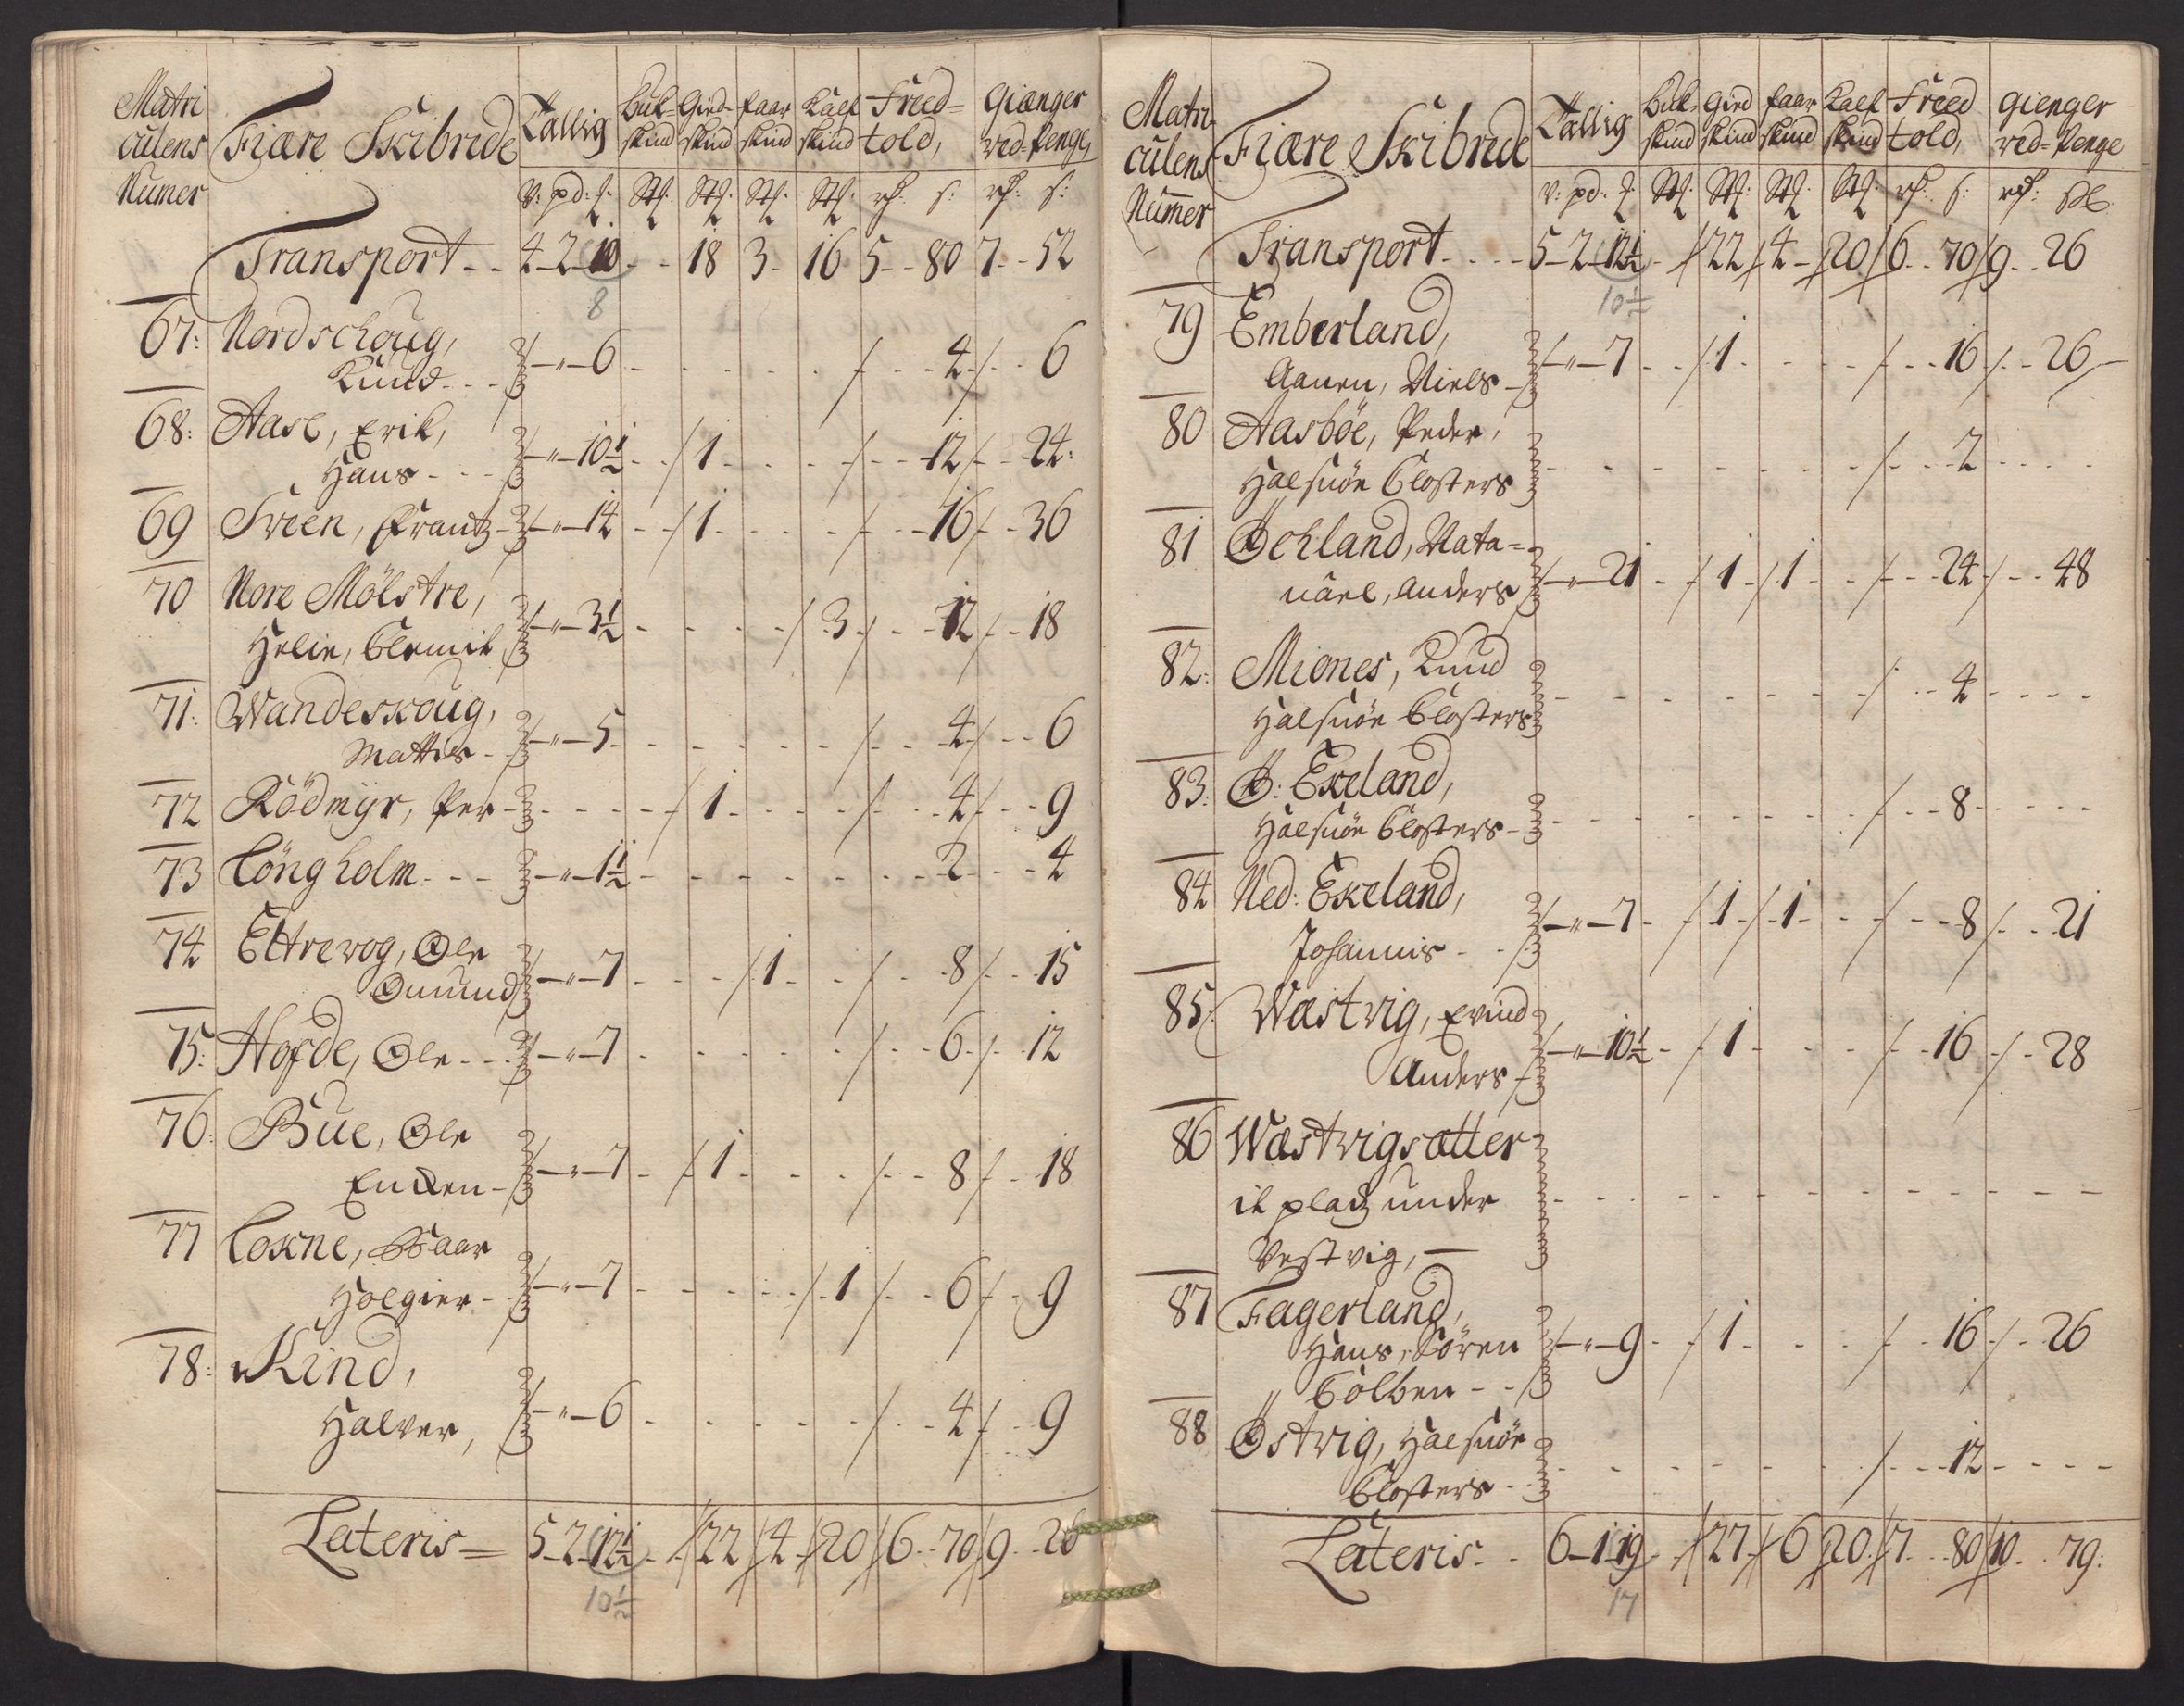 Matri
culens
Numer
Fiære Skibrede
Tallig
Buk-
skind
Gied-
skind
faar
skind
Kalf
skind
Freed=
told,
Giænger
red-Penge,
v: pd: Stk. Stk. Stk. Stk. s: s:
Transport - - 4 - 2 - 10 - - 18 3 - 16 5 - - 80 7 - - 52
8
67: Nordschoug,
Knud - - - - " - 6 - - - - 4 - - 6
68: Aase, Erik,
Hans - - - - " - 10½ - - 1 - - - 12 - - 24:
69 Sveen, Frantz - - " - 14 - - 1 - - - 16 - - 36
70 Nore Mölstre,
Helie, - " - 3½ - - - 3 - - 12 - - 18
71: Wandeskoug,
Mattis - - " - 5 - - - - 4 - - 6
72 Rödmyr, Per - - - - 1 - - - 4 - - 9
73 Löngholm - - - - " - 1½ - - - - 2 - - 4
74 Eltrevog, Ole
Omund - " - 7 - - - 1 - - 8 - - 15
75: Hofde, Ole - - - - " - 7 - - - - 6 - - 12
76: Bue, Ole
Enden - - " - 7 - - 1 - - - 8 - - 18
77 Loskne,
Holgier - - " - 7 - - - - 1 - - 6 - - 9
78: Kind,
Halver, - " - 6 - - - - 4 - - 9
Lateris = 5 - 2 - 12½ - - 22 4 - 20 6 - - 70 9 - - 26
10½
Matri-
culens
Numer
Fiære Skibrede
Tallig
Buk-
skind
Gied
skind
faar
skind
Kalf
skind
Freed
told,
gienger
red=Penge
v: pd: Stk. Stk. Stk. Stk. s:
Transport - - - - 5 - 2 - 12½ - 22 4 - 20 6 - - 70 9 - - 26
10½
79 Emberland,
Aanen, Niels - - " - 7 - - 1 - - - 16 - - 26
80 Aasböe, Peder,
Halsnöe Closters - - - - - 2 - - -
81 Öchland, Nata=
nael, Anders - " - 21 - - 1 - 1 - - 24 - - 48
82: Miones, Knud
Halsnöe Closters - - - - - 4 - - -
83: Ö: Ekeland,
Halsnöe Closters - - - - - 8 - - -
84 Ned: Ekeland,
Johannis - - - " - 7 - - 1 - 1 - - 8 - - 21
85: Wæstvig, Evind
Anders - - " - 10½ - - 1 - - - 16 - - 28
86 Wæstvigsætter
it platz under
Vestvig, — - - - - - - -
87 Fagerland,
Hans, Sören
Colben - - - " - 9 - - 1 - - - 16 - - 26
88 Östvig, Halsnöe
Closters - - - - - - 12 - - -
Lateris - - 6 - 1 - 19 - - 27 6 20 7 - - 80 10 - - 79:
17